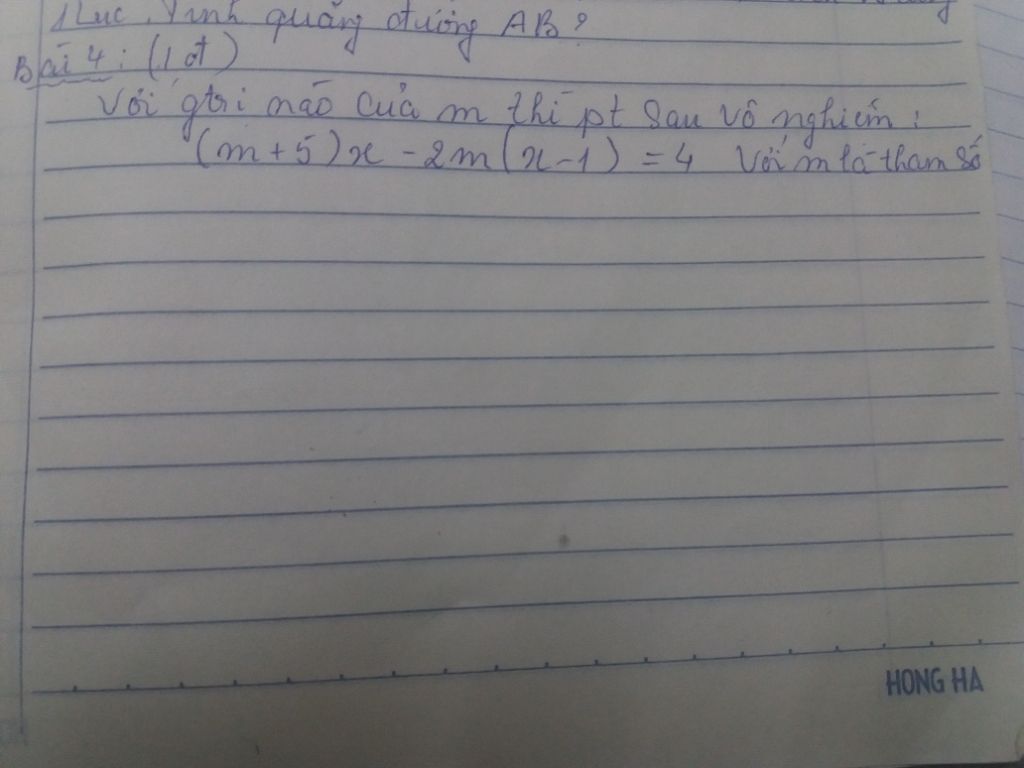 quãng đường AB?
Bài 4: (1 đ)
Với gtri nào của m thì pt sau vô nghiệm:
(m+5)x - 2m(x-1) = 4 Với m là tham số
HONG HA